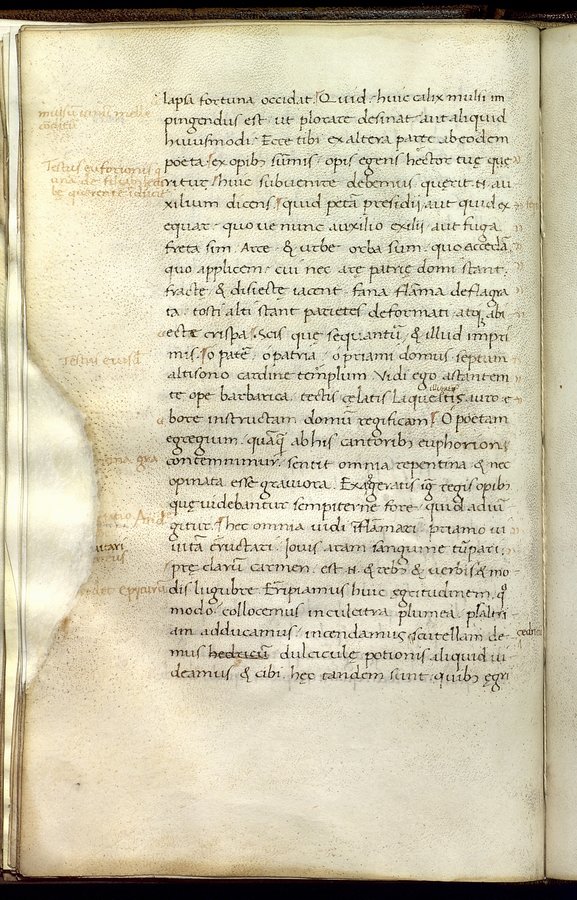 lapsa fortuna occidat. Quid huic calix mulsi im
pingendus est ut plorare desinat aut aliquid
huiusmodi. Ecce tibi ex altera parte ab eodem
poeta ex opibꝰ sūmis opis egens hector tuę quę
ritur huic subvenire debemus querit .n. au
xilium dicens quid petā pręsidii aut quid ex
equar quo ve nunc auxilio exilii aut fuga
freta sim. Arce & urbe orba sum. quo accedā
quo applicem. cui nec arę patrię domi stant.
fractę & disiectę iacent. fana flāma deflagra
ta. tosti alti stant parietes deformati atq; abi
ecte crispa. Scis quę sequantū & illud impri
mis. o pater. o patria. o priami domus septum
altisono cardine templum. Vidi ego astantem
te ope barbarica. tectis cęlatis laqueatis auro e
bore instructam domū regificam. O poetam
egregium. quāq̄ ab his cantoribꝰ euphorionis
contemnimur. sentit omnia repentina & nec
opinata esse graviora. Exageratis igr̄ regis opibꝰ
quę videbantur sempiternę fore. quid adiū
gitur. hęc omnia vidi īflāmari priamo vi
vitā ēructari. Iovis aram sanguine tūpari.
pręclarū carmen. est .n. & rebꝰ & verbis & mo
dis lugubre. Eripiamus huic egritudinem. q̊
modo. collocemus in culcitra plumea. psaltri
am adducamus. incendamus scutellam de
mus hedricū dulciculę potionis aliquid vi
deamus & cibi. hęc tandem sunt quibꝰ ęgri
mulsū vinū melle
conditū
Testus euforionis
Testus eiusd
cedrici